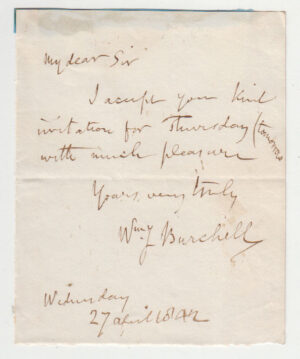 My dear Sir
I accept your kind
invitation for Thursday (tomorrow
with much pleasure
Yours very truly
Wm J Burchell
Wednesday
27 April 1842